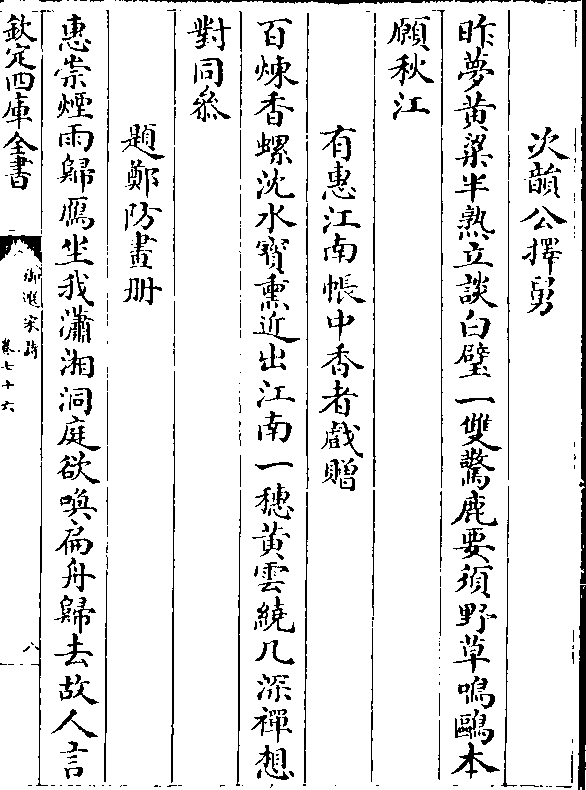 次韻公擇舅
昨夢黄粱半熟立談白璧一雙驚鹿要須野草鳴鷗本
願秋江
有惠江南帳中香者戲贈
百煉香螺沈水寳熏近出江南一穗黄雲繞几深禪想
對同參
題鄭防畫册
惠崇煙雨歸鴈坐我瀟湘洞庭欲喚扁舟歸去故人言
欽定四庫全書
御選宋詩
卷七十六
八